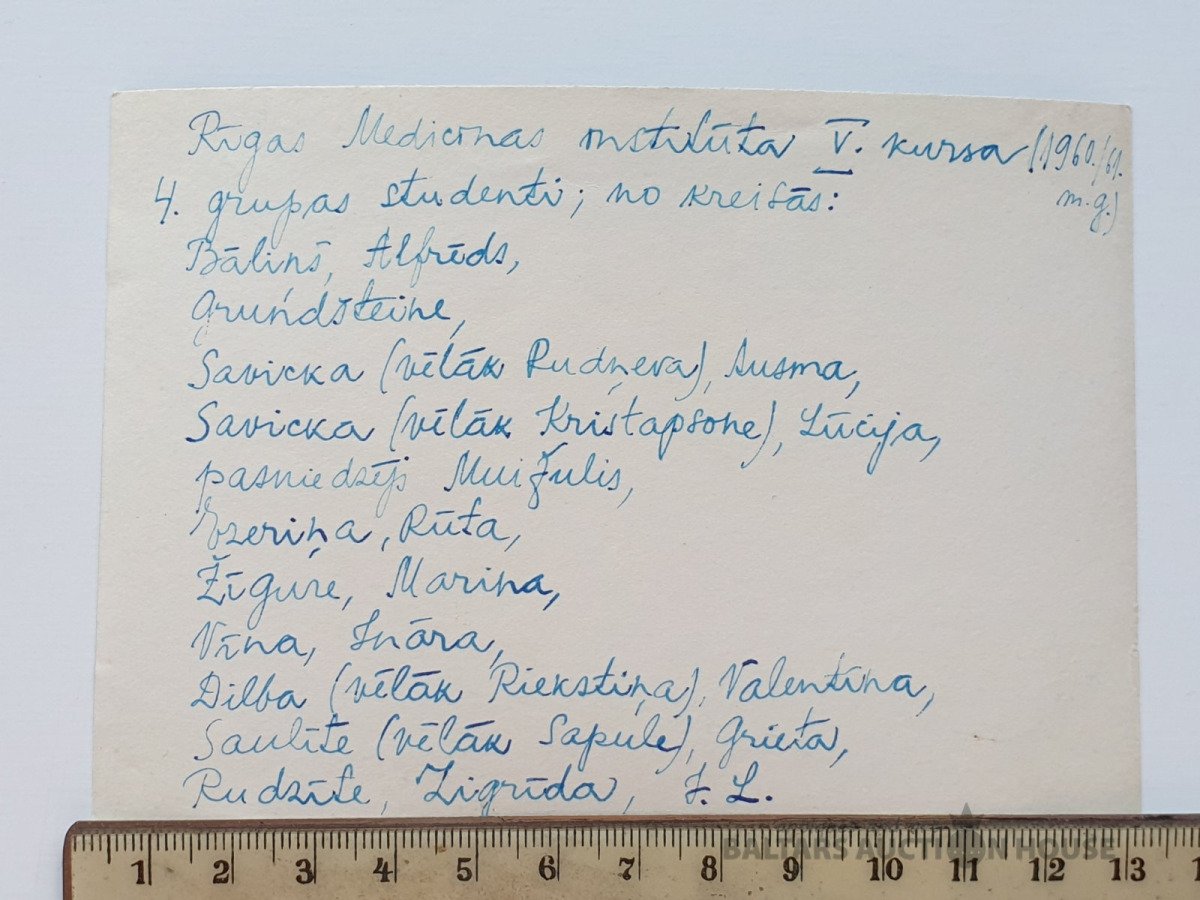 Rīgas Medicīnas institūta V. kursa (1960./61. m.g.)
4. grupas studenti; no kreisās:
Bāliņš, Alfrēds,
Grundšteine,
Savicka (vēlāk Rudņeva), Ausma,
Savicka (vēlāk Kristapsone), Lūcija,
pasniedzējs Muižulis,
Ezeriņa, Rūta,
Žīgure, Mariņa,
Vīna, Ināra,
Dilba (vēlāk Riekstiņa), Valentīna,
Saulīte (vēlāk Sapule), Grieta,
Rudzīte, Zigrīda, J. L.
BALTARS AUCTION HOUSE
1 2 3 4 5 6 7 8 9 10 11 12 13 1